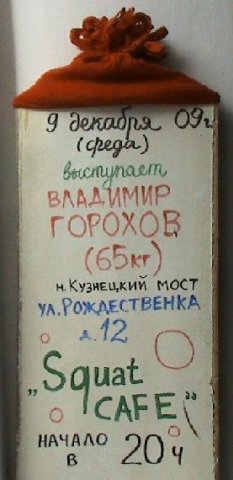 9 декабря 09г
(среда)
выступает
ВЛАДИМИР
ГОРОХОВ
(65кг)
м. Кузнецкий мост
ул. Рождественка
д. 12
„Squat
CAFE“
НАЧАЛО
В 20 ч